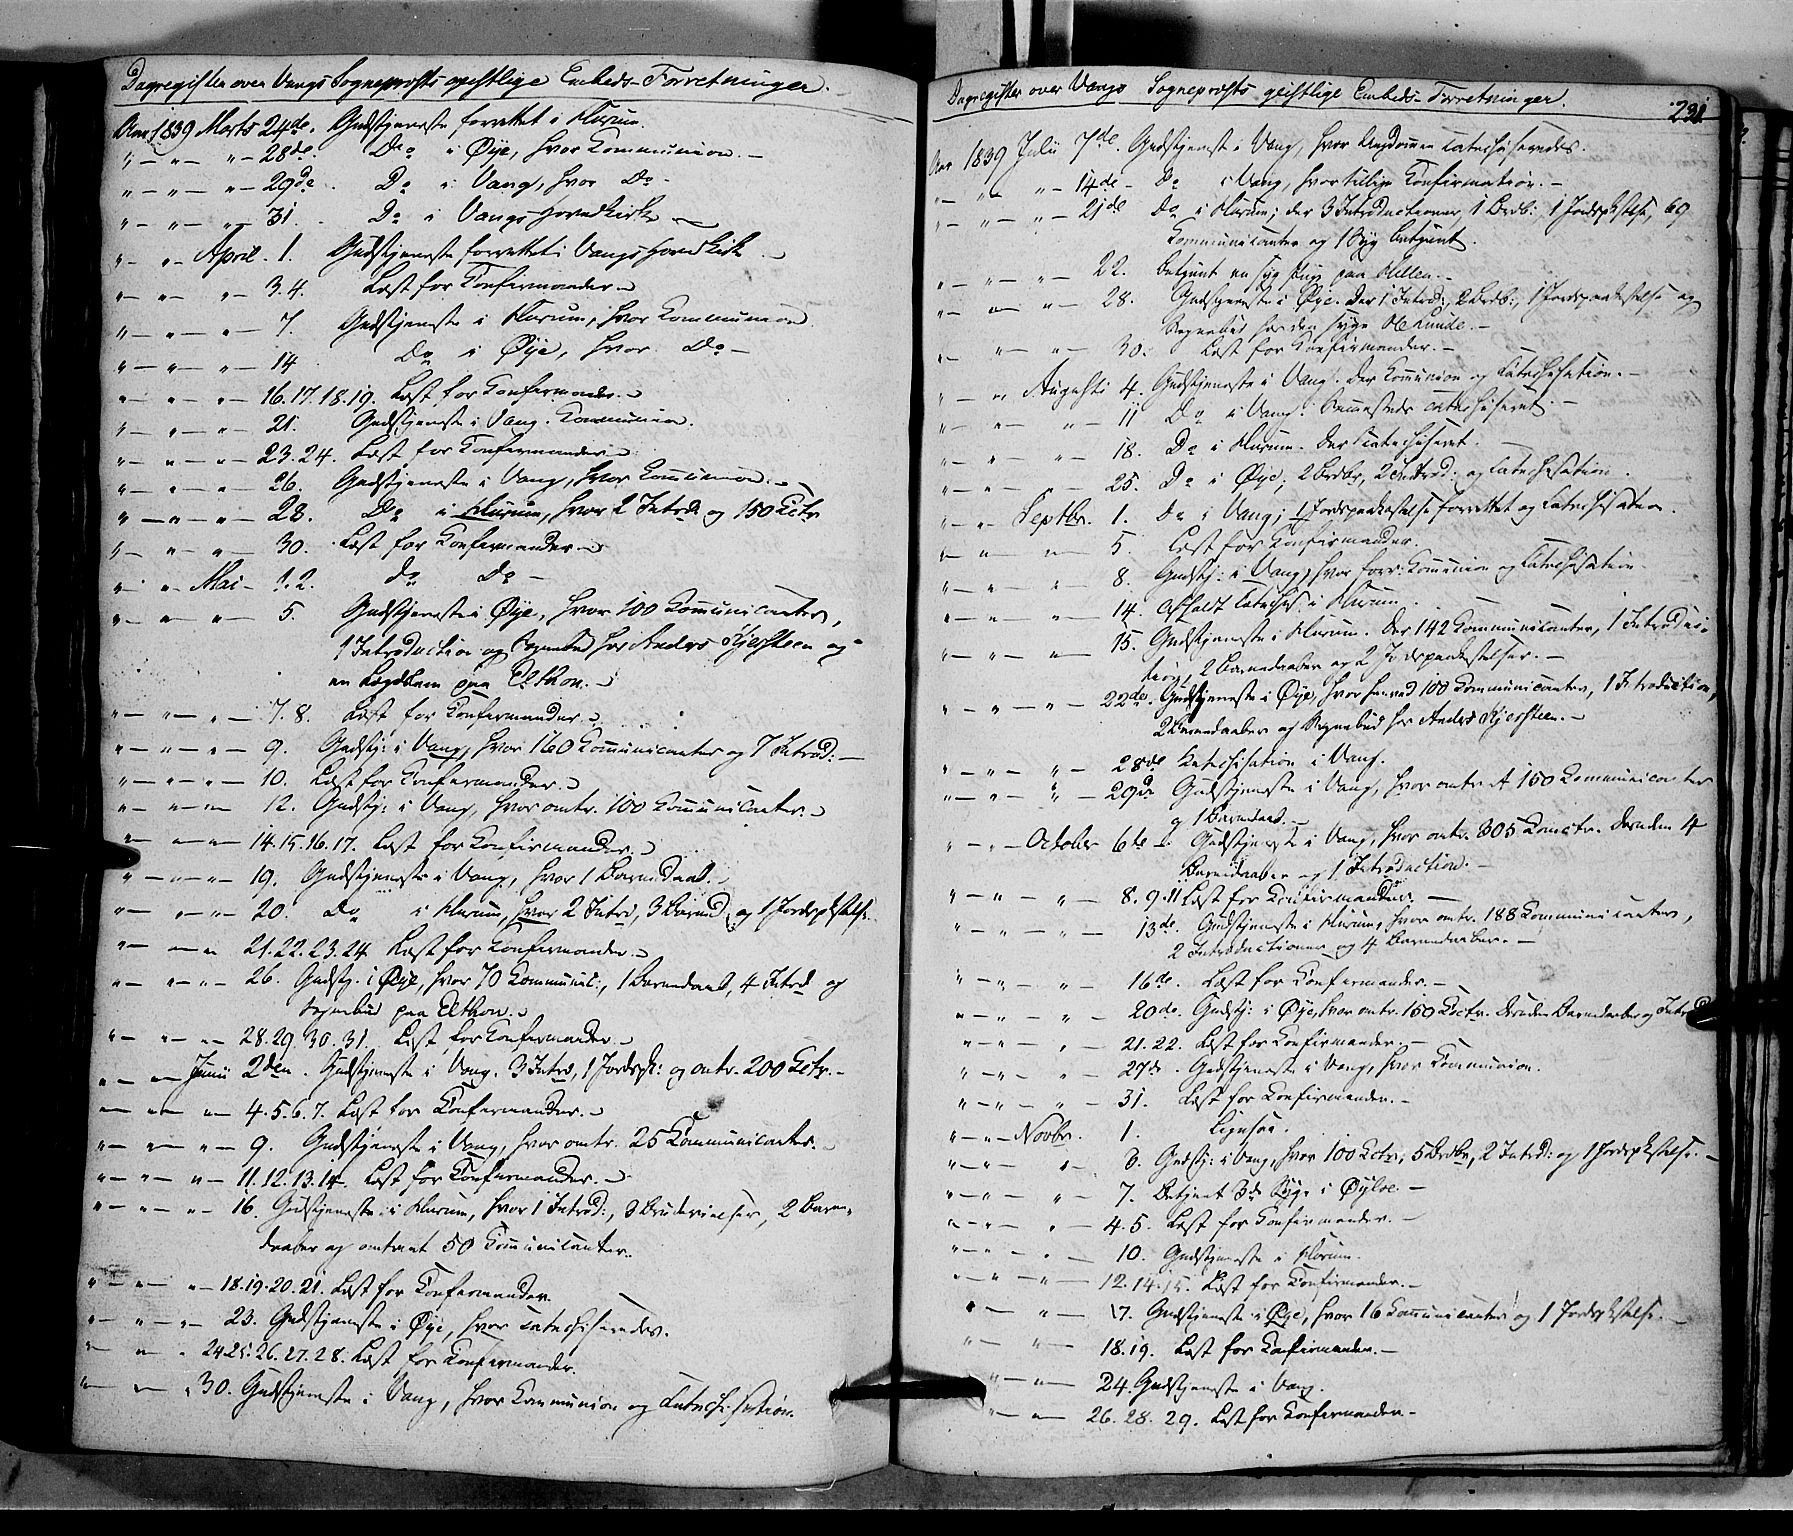 Dagregister over Vangs Sogneprests geistlige Embeds-Forretninger.
Aar 1839 Marts 24de. Gudstjeneste forrettet i Hurum.
" — " — " — 28de. Do i Øye, hvor Kommunion. —
" — " — " — 29de. Do i Vang, hvor Do —
" — " — " — 31. Do i Vangs Hovedkirke —
" — " — April. 1. Gudstjeneste forrettet i Vangs Hovedkirke —
" — " — " — 3.4. Læst for Confirmander. —
" — " — " — 7. Gudstjeneste i Hurum, hvor Kommunion
" — " — " — 14 Do i Øye, hvor Do —
" — " — " — 16.17.18.19. Læst for Confirmander. —
" — " — " — 21. Gudstjeneste i Vang. Kommunion.
" — " — " — 23.24. Læst for Confirmander. —
" — " — " — 26. Gudstjeneste i Vang, hvor Communion. —
" — " — " — 28. Do i Hurum, hvor 2 Introd. og 150 Cctr.
" — " — " — 30. Læst for Confirmander. —
" — " — Mai — 1.2. do Do —
" — " — " — 5. Gudstjeneste i Øye, hvor 100 Communicanter,
1 Introduction og Sognebud hos Anders Kjersteen og
en paa Elthon. —
" — " — " — 7.8. Læst for Confirmander. —
" — " — " — 9. Gudstj: i Vang, hvor 160 Communicanter og 7 Introd: —
" — " — " — 10. Læst for Confirmander. —
" — " — " — 12. Gudstj: i Vang, hvor omtr. 100 Communicanter. —
" — " — " — 14.15.16.17. Læst for Confirmander. —
" — " — " — 19. Gudstjeneste i Vang, hvor 1 Barnedaab. —
" — " — " — 20. Do i Hurum, hvor 2 Introd, 3 Barned og 1 Jordspkstelse.
" — " — " — 21.22.23.24 Læst for Confirmander. —
" — " — " — 26. Gudstj. i Øye, hvor 70 Communic:, 1 Barnedaab, 4 Introd og
Sognebud paa Elthon. —
" — " — " — 28.29.30.31. Læst for Confirmander. —
" — " — Junii 2den. Gudstjeneste i Vang. 3 Introd, 1 Jordspk: og omtr. 200 Cctr. —
" — " — " — 4.5.6.7. Læst for Confirmander. —
" — " — " — 9. Gudstjeneste i Vang, hvor omtr. 25 Communicanter. —
" — " — " — 11.12.13.14. Læst for Confirmander. —
" — " — " — 16. Gudstjeneste i Hurum, hvor 1 Introd:, 3 Brudevielser, 2 Barne-
daaber og omtrent 50 Communicanter.
" — " — " — 18.19.20.21. Læst for Confirmander.
" — " — " — 23. Gudstjeneste i Øye, hvor catechiseredes.
" — " — " 24.25.26.27.28. Læst for Confirmander.
" — " — " 30. Gudstjeneste i Vang, hvor Kommunion og Catechisation.
Dagregister over Vangs Sogneprests geistlige Embeds-Forretninger.
231
Aar 1839 Julii 7de. Gudstjenest i Vang, hvor Ungdommen catechiseredes.
" — " — " — 14de — Do i Vang, hvor tillige Confirmation. —
" — " — " — 21de Do i Hurum; der 3 Introductioner, 1 Brdb:, 1 Jordspkstelse, 69
Kommunicanter og 1 Syg betjent.
" — " — " — 22. Betjent en syg Pige paa
" — " — " — 28. Gudstjeneste i Øye. Der 1 Introd:, 2 Brdb:, 1 Jordspaakastelse og
Sognebud hos den syge
" — " — " — 30. Læst for Confirmander. —
" — " — Augusti 4. Gudstjeneste i Vang. Der Communion og Catechisation. —
" — " — " — 11 Do i Vang. Sammesteds catechiseret. —
" — " — " — 18. Do i Hurum. Der Catechiseret.
" — " — " — 25. Do i Øye; 2 Brdbr, 2 Introd: og Catechisation.
" — " — Septbr. 1. Do i Vang; 1 Jordspaakastelse forrettet og Catechisation.
" — " — " — 5. Læst for Confirmander.
" — " — " — 8. Gudstj: i Vang, hvor forr: Communion og Catechisation.
" — " — " — 14. Afholdt Catechis. i Hurum.
" — " — " — 15. Gudstjeneste i Hurum. Der 142 Communicanter, 1 Introduc-
tion, 2 Barnedaaber og 2 Jordspaakastelser. —
" — " — " — 22de. Gudstjeneste i Øye, hvor henved 100 Communicanter, 1 Introduction,
2 Barnedaaber og Sognebud hos Anders Kjersteen. —
" — " — " — 28de Catechisation i Vang.
" — " — " — 29de Gudstjeneste i Vang, hvor omtr. 150 Communicanter
og 1 Barnedaab. —
" — " — October 6te Gudstjeneste i Vang, hvor omtr. 305 Comctr. desuden 4
Barnedaaber og 1 Introduction. —
" — " — " — 8.9.11 Læst for Confirmander. —
" — " — " — 13de. Gudstjeneste i Hurum, hvor omtr. 188 Communicanter,
2 Introductioner og 4 Barnedaaber. —
" — " — " — 16de. Læst for Confirmander. —
" — " — " — 20de. Gudstj: i Øye, hvor omtr. 150 Cctr. desuden Barnedaaber og Introd
" — " — " — 21.22. Læst for Confirmander. —
" — " — " — 27de. Gudstjeneste i Vang, hvor Communion.
" — " — " — 31. Læst for Confirmander. —
" — " — Novbr. 1. Ligesaa.
" — " — " — 3. Gudstj: i Vang, hvor 100 Cctr, 5 Brdbr, 2 Introd: og 1 Jordspkstelse. —
" — " — " — 7. Betjent 3de Syge i Øyloe. —
" — " — " — 4.5. Læst for Confirmander. —
" — " — " — 10. Gudstjeneste i Hurum.
" — " — " — 12.14.15. Læst for Confirmander. —
" — " — 17. Gudstjeneste i Øye, hvor 16 Communicanter og 1 Jordspkstelse. —
" — " — 18.19. Læst for Confirmander. —
" — " — 24. Gudstjeneste i Vang.
" — " — 26.28.29. Læst for Confirmander —